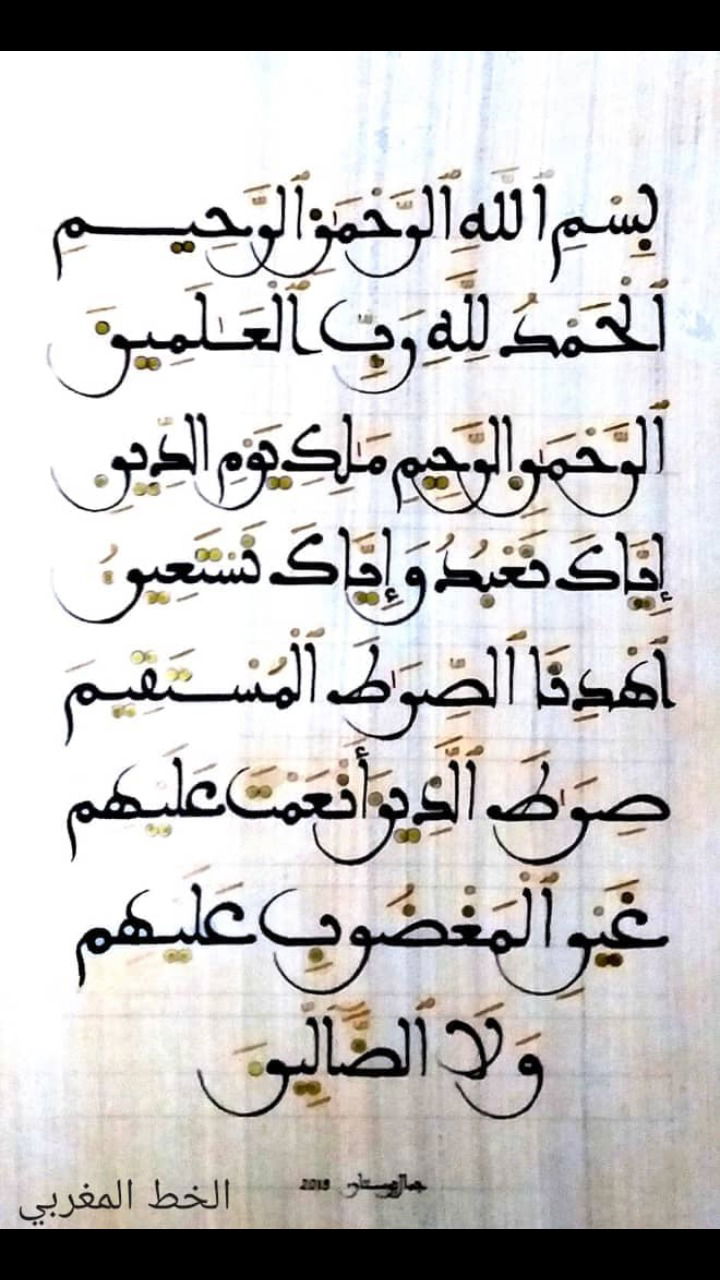 بِسْمِ ٱللَّهِ ٱلرَّحْمَٰنِ ٱلرَّحِيمِ
ٱلْحَمْدُ لِلَّهِ رَبِّ ٱلْعَٰلَمِينَ
ٱلرَّحْمَٰنِ ٱلرَّحِيمِ مَٰلِكِ يَوْمِ ٱلدِّينِ
إِيَّاكَ نَعْبُدُ وَإِيَّاكَ نَسْتَعِينُ
ٱهْدِنَا ٱلصِّرَٰطَ ٱلْمُسْتَقِيمَ
صِرَٰطَ ٱلَّذِينَ أَنْعَمْتَ عَلَيْهِمْ
غَيْرِ ٱلْمَغْضُوبِ عَلَيْهِمْ
وَلَا ٱلضَّالِّينَ
2019
الخط المغربي